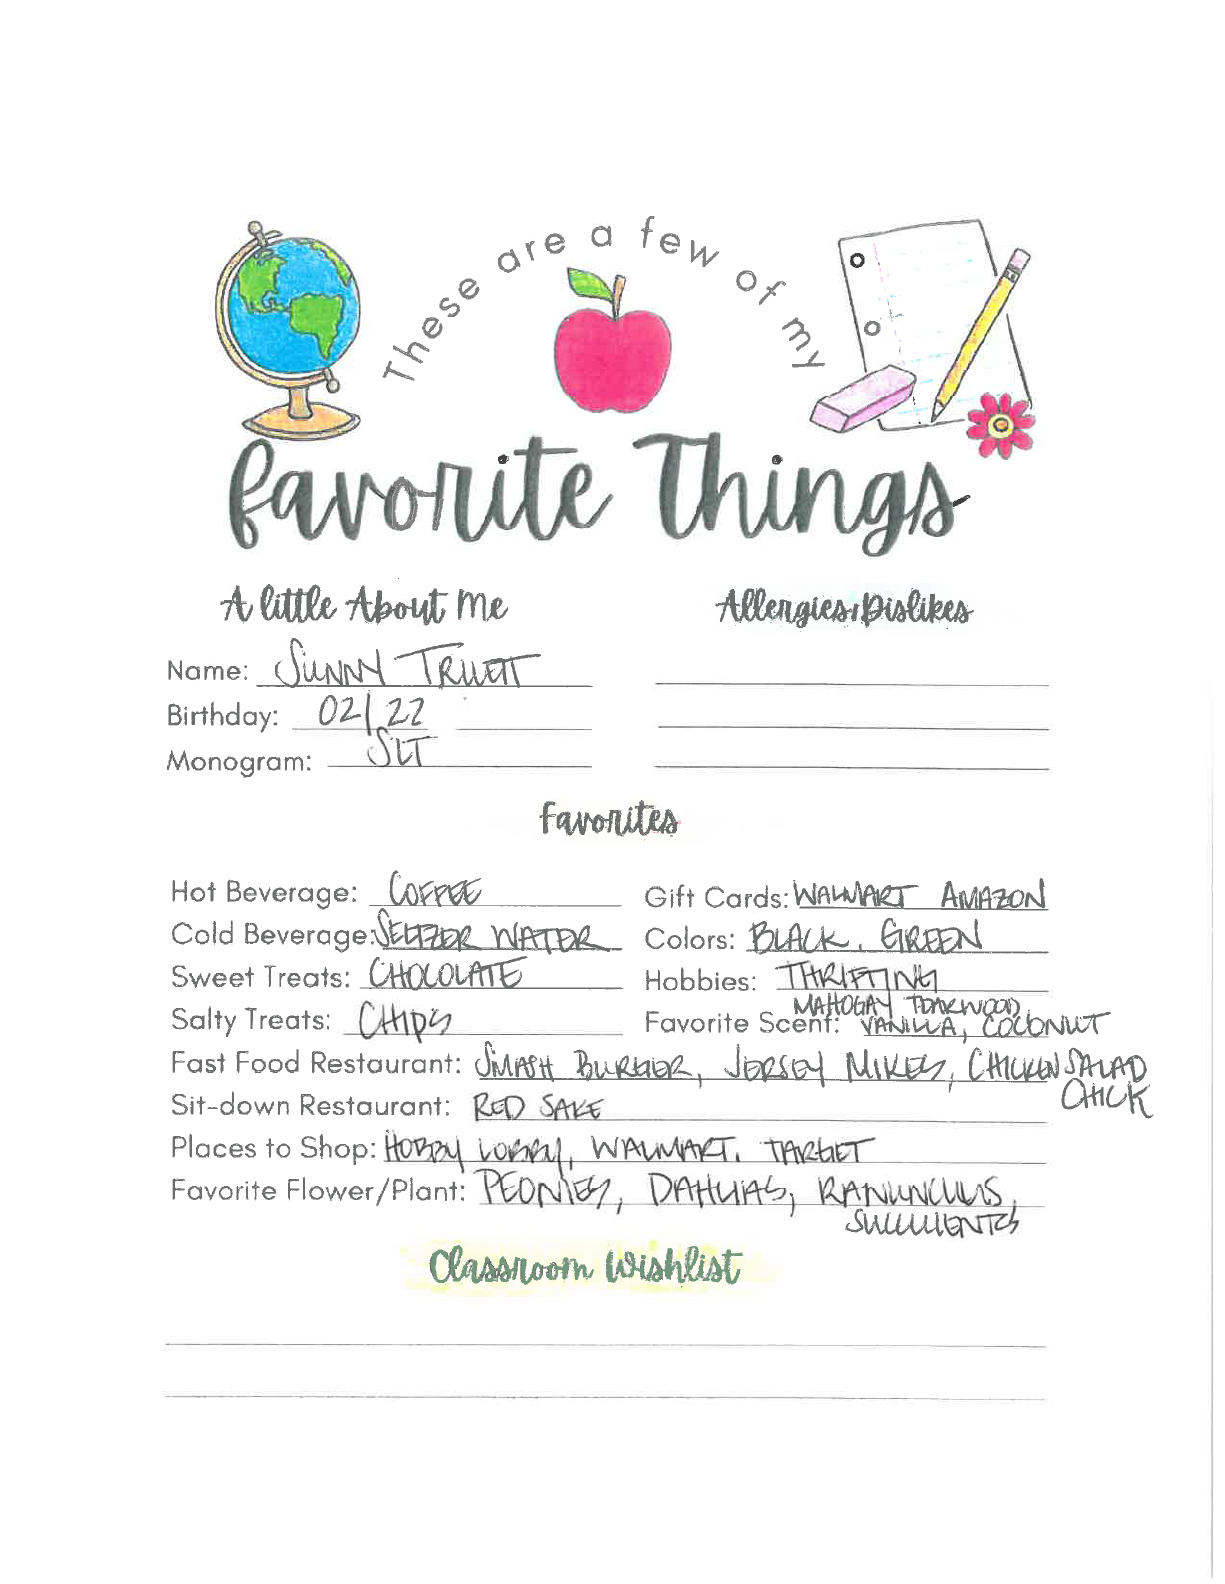 These are a few of my
favorite Things
A little About Me
Allergies/Dislikes
Name: SUNNY TRUETT
Birthday: 02/22
Monogram: SLT
Favorites
Hot Beverage: COFFEE
Gift Cards: WALMART AMAZON
Cold Beverage: SELTZER WATER
Colors: BLACK, GREEN
Sweet Treats: CHOCOLATE
Hobbies: THRIFTING
MAHOGAY TEAKWOOD
Salty Treats: CHIPS
Favorite Scent: VANILLA, COCONUT
Fast Food Restaurant: SMASH BURGER, JERSEY MIKES, CHICKEN SALAD
CHICK
Sit-down Restaurant: RED SAKE
Places to Shop: HOBBY LOBBY, WALMART, TARGET
Favorite Flower/Plant: PEONIES, DAHLIAS, RANUNCULUS,
SUCCULENTS
Classroom Wishlist